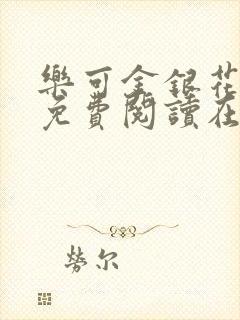 樂可金銀花
免費閱讀在
勞尔